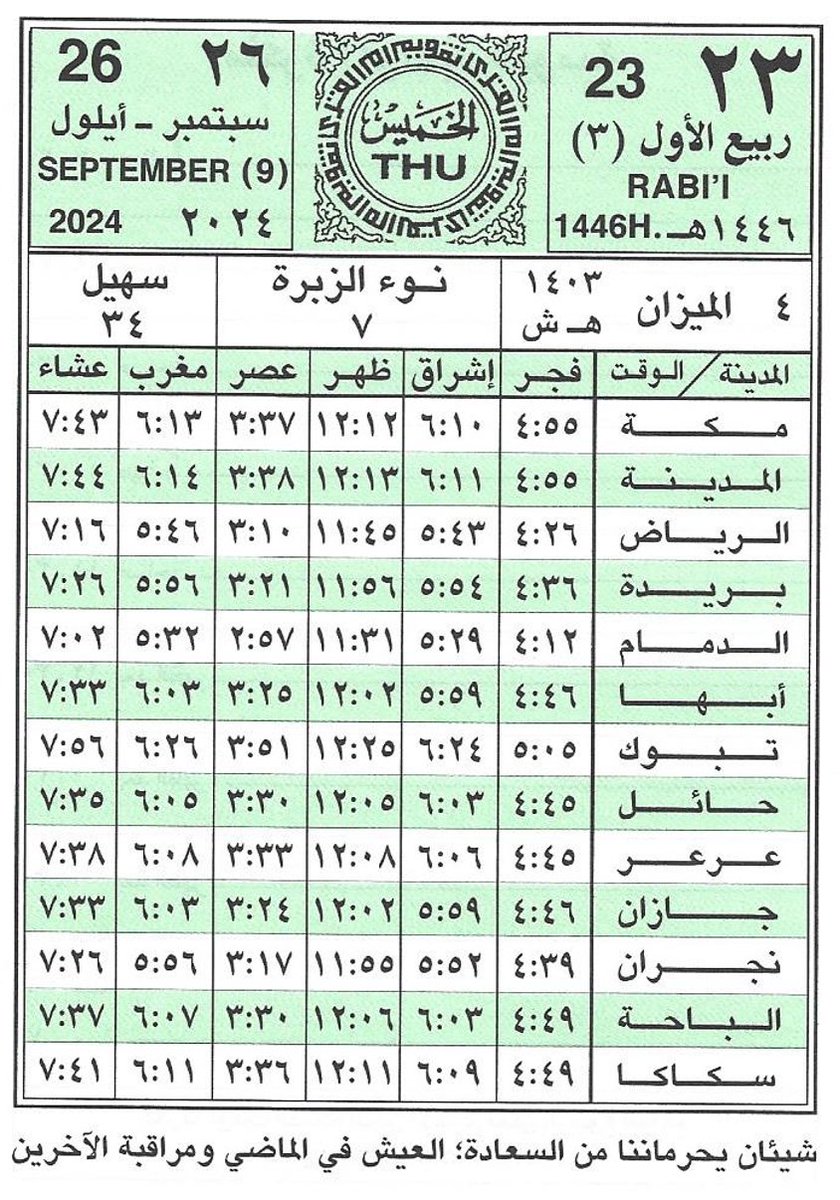 ٢٣ 23
ربيع الأول (٣)
RABI'I
١٤٤٦هـ. 1446H
الخميس
THU
٢٦ 26
سبتمبر - أيلول
SEPTEMBER (9)
٢٠٢٤ 2024
٤ الميزان ١٤٠٣ هـ ش
نوء الزبرة ٧
سهيل ٣٤
المدينة / الوقت فجر إشراق ظهر عصر مغرب عشاء
مكة ٤:٥٥ ٦:١٠ ١٢:١٢ ٣:٣٧ ٦:١٣ ٧:٤٣
المدينة ٤:٥٥ ٦:١١ ١٢:١٣ ٣:٣٨ ٦:١٤ ٧:٤٤
الرياض ٤:٢٦ ٥:٤٣ ١١:٤٥ ٣:١٠ ٥:٤٦ ٧:١٦
بريدة ٤:٣٦ ٥:٥٤ ١١:٥٦ ٣:٢١ ٥:٥٦ ٧:٢٦
الدمام ٤:١٢ ٥:٢٩ ١١:٣١ ٢:٥٧ ٥:٣٢ ٧:٠٢
أبها ٤:٤٦ ٥:٥٩ ١٢:٠٢ ٣:٢٥ ٦:٠٣ ٧:٣٣
تبوك ٥:٠٥ ٦:٢٤ ١٢:٢٥ ٣:٥١ ٦:٢٦ ٧:٥٦
حائل ٤:٤٥ ٦:٠٣ ١٢:٠٥ ٣:٣٠ ٦:٠٥ ٧:٣٥
عرعر ٤:٤٥ ٦:٠٦ ١٢:٠٨ ٣:٣٣ ٦:٠٨ ٧:٣٨
جازان ٤:٤٦ ٥:٥٩ ١٢:٠٢ ٣:٢٤ ٦:٠٣ ٧:٣٣
نجران ٤:٣٩ ٥:٥٢ ١١:٥٥ ٣:١٧ ٥:٥٦ ٧:٢٦
الباحة ٤:٤٩ ٦:٠٣ ١٢:٠٦ ٣:٣٠ ٦:٠٧ ٧:٣٧
سكاكا ٤:٤٩ ٦:٠٩ ١٢:١١ ٣:٣٦ ٦:١١ ٧:٤١
شيئان يحرماننا من السعادة؛ العيش في الماضي ومراقبة الآخرين